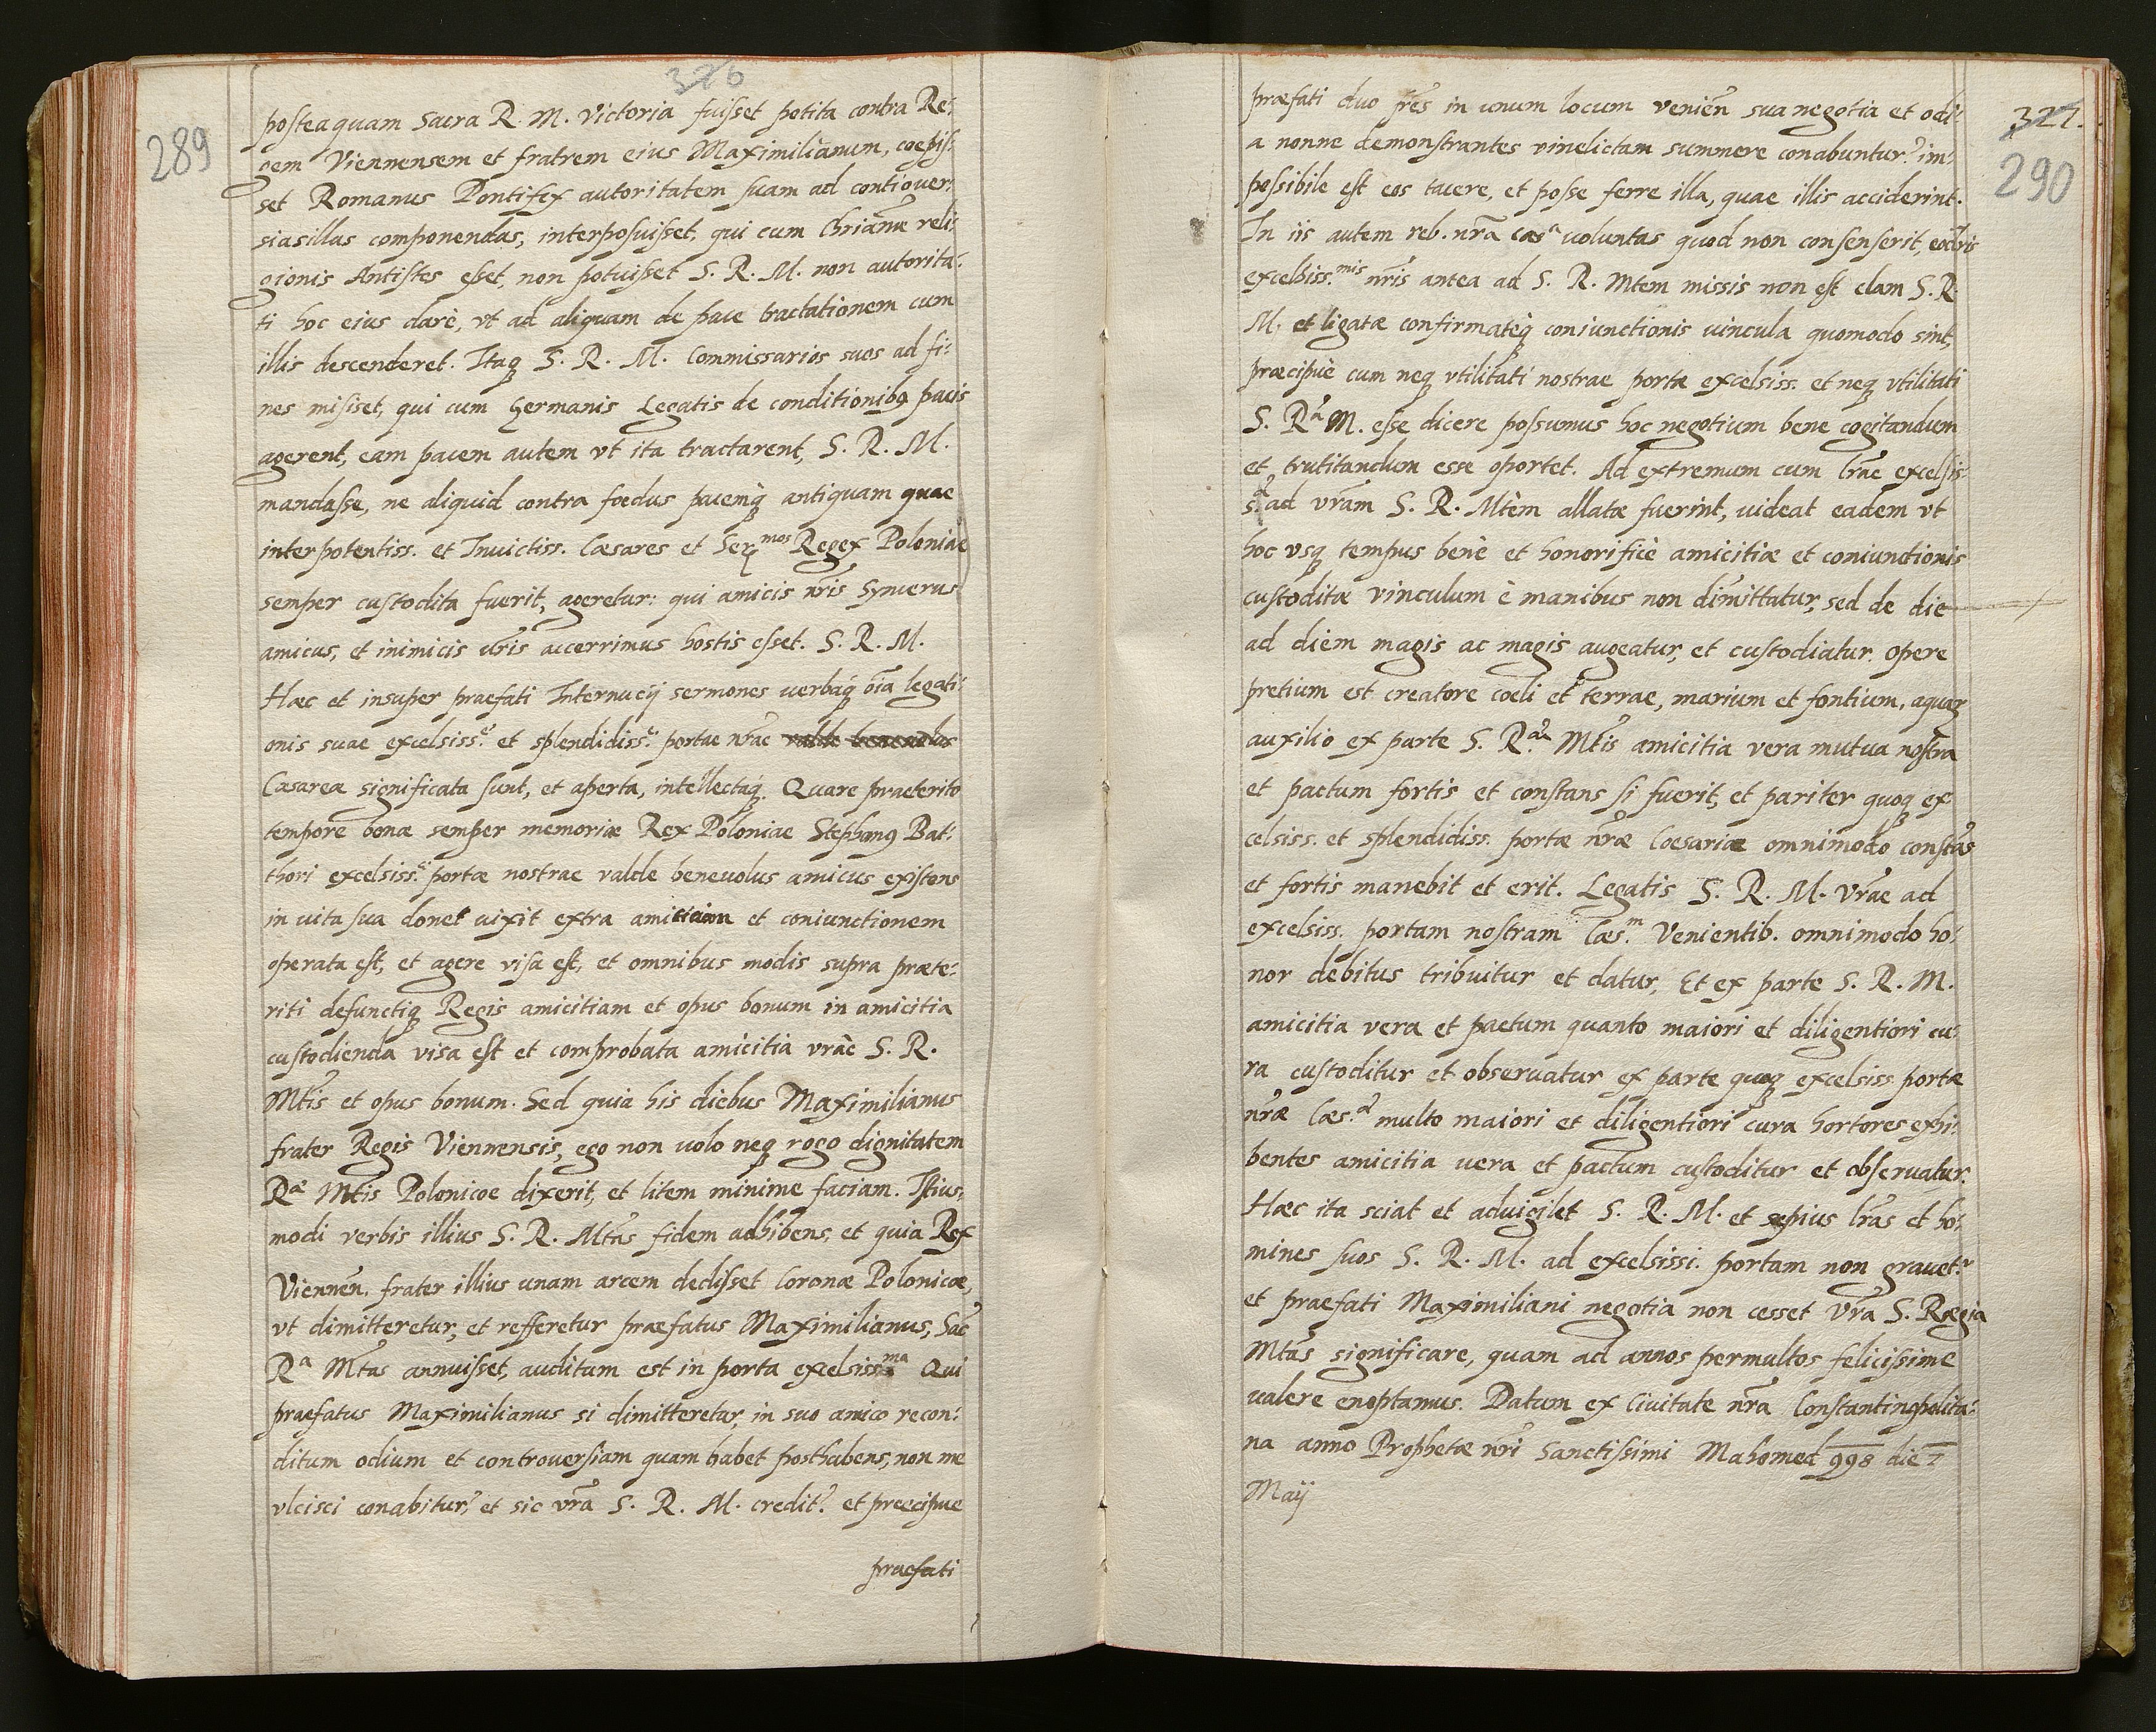 326
289
posteaquam Sacra R. M. Victoria fuisset potita contra Re:
gem Viennensem et fratrem eius Maximilianum, coepis:
set Romanus Pontifex autoritatem suam ad contiover:
siasillas componendas, interposuisset, qui cum Chriãnæ reli:
gionis Antistes esset, non potuisset S. R. M. non autorita:
ti hoc eius darè, vt ad aliquam de pace tractationem cum
illis descenderet. Itaq; S. R. M. Commissarios suos ad fi:
nes misiset, qui cum Germanis Legatis de conditionibq pacis
agerent, eam pacem autem vt ita tractarent, S. R. M.
mandasse, ne aliquid contra foedus pacemq; antiquam quae
inter potentiss. et Invictiss. Cæsares et Ser:mos Regex Poloniae
semper custodita fuerit, ageretur: qui amicis nr̃is Syncerus
amicus, et inimicis vr̃is accerrimus hostis esset. S. R. M.
Hæc et insuper praefati Internucij sermones uerbaq; oĩa legati:
onis suae excelsiss:æ et splendidiss:æ portae nr̃ae valde beneuolus
Cæsareæ significata sunt, et aperta, intellectaq;. Quare praeterito
tempore bonæ semper memoriæ Rex Poloniae Stephanq Bat:
thori excelsiss:æ portæ nostrae valde beneuolus amicus existens
in uita sua donet uixit extra amiticiam et coniunctionem
operata est, et agere visa est, et omnibus modis supra præte:
riti defunctiq; Regis amicitiam et opus bonum in amicitia
custodienda visa est et comprobata amicitia vr̃ae S. R.
Mt̃is et opus bonum. Sed quia his diebus Maximilianus
frater Regis Viennensis, ego non uolo neq; rogo dignitatem
Ræ Mtis Polonicoe dixerit, et litem minime faciam. Istius,
modi verbis illius S. R. Mtãs fidem adhibens, et quia Rex
Viennen̄. frater illius unam arcem dedisset Coronæ Polonicæ,
vt dimitteretur, et refferetur præfatus Maximilianus, Sac̃
Ra Mtãs annuisset, auditum est in porta excelsissma Qui
praefatus Maximilianus si dimitteretur, in suo amico recon:
ditum odium et controuersiam quam habet posthabens, non me
vlcisci conabitur? et sic vr̃a S. R. M. credit? et præcipue
praefati
327.
290
præfati duo fr̃es in unum locum venien̄ sua negotia et odi:
a nonne demonstrantes vinelictam summere conabuntur? im:
possibile est eos tacere, et posse ferre illa, quae illis acciderint.
In iis autem reb. nr̃a Casa uoluntas quod non consenserit,
excelsiss.mis nr̃is antea ad S. R. Mtem missis non est clam S. R.
M. et ligatæ confirmateq; coniunctionis uincula quomodo sint,
præcipuè cum neq; vtilitati nostrae portæ excelsiss. et neq; vtilitati
S. Ræ M. esse dicere possumus hoc negotium bene cogitandum
et trutitandum esse oportet. Ad extremum cum lr̃ae excelsis:
s:æ ad vr̃am S. R. Mtèm allatæ fuerint, uideat eadem vt
hoc vsq; tempus benè et honorificè amicitiæ et coniunctionis
custoditæ vinculum è manibus non dimittatur, sed de die
ad diem magis ac magis augeatur, et custodiatur. Opere
pretium est creatore coeli et terrae, marium et fontium, aquar
auxilio ex parte S. Ræ Mt̃is amicitia vera mutua nostra
et pactum fortis et constans si fuerit, et pariter quoq; ex
celsiss. et splendidiss. portæ nr̃æ Coesariæ omnimodo constãs
et fortis manebit et erit. Legatis S. R. M. Vr̃ae ad
excelsiss. portam nostram Cæs.m Venientib. omnimodo ho:
nor debitus tribuitur et datur, Et ex parte S. R. M.
amicitia vera et pactum quanto maiori et diligentiori cu:
ra custoditur et obseruatur ex parte quoq; excelsiss. portæ
nr̃æ Cæs.æ multo maiori et diligentiori cura hortores exhi:
bentes amicitia uera et pactum custoditur et obseruatur.
Hæc ita sciat et aduigilet S. R. M. et sepius lr̃as et ho:
mines suos S. R. M. ad excelsissi. portam non grauet.r
et praefati Maximiliani negotia non cesset Vr̃a S. Rægia
Mtãs significare, quam ad annos permultos felicissime
ualere enoptamus. Datum ex Ciuitate nr̃a Constantinopolita:
na anno Prophetæ nr̃i Sanctissimi Mahomed 998 die 7
Maij